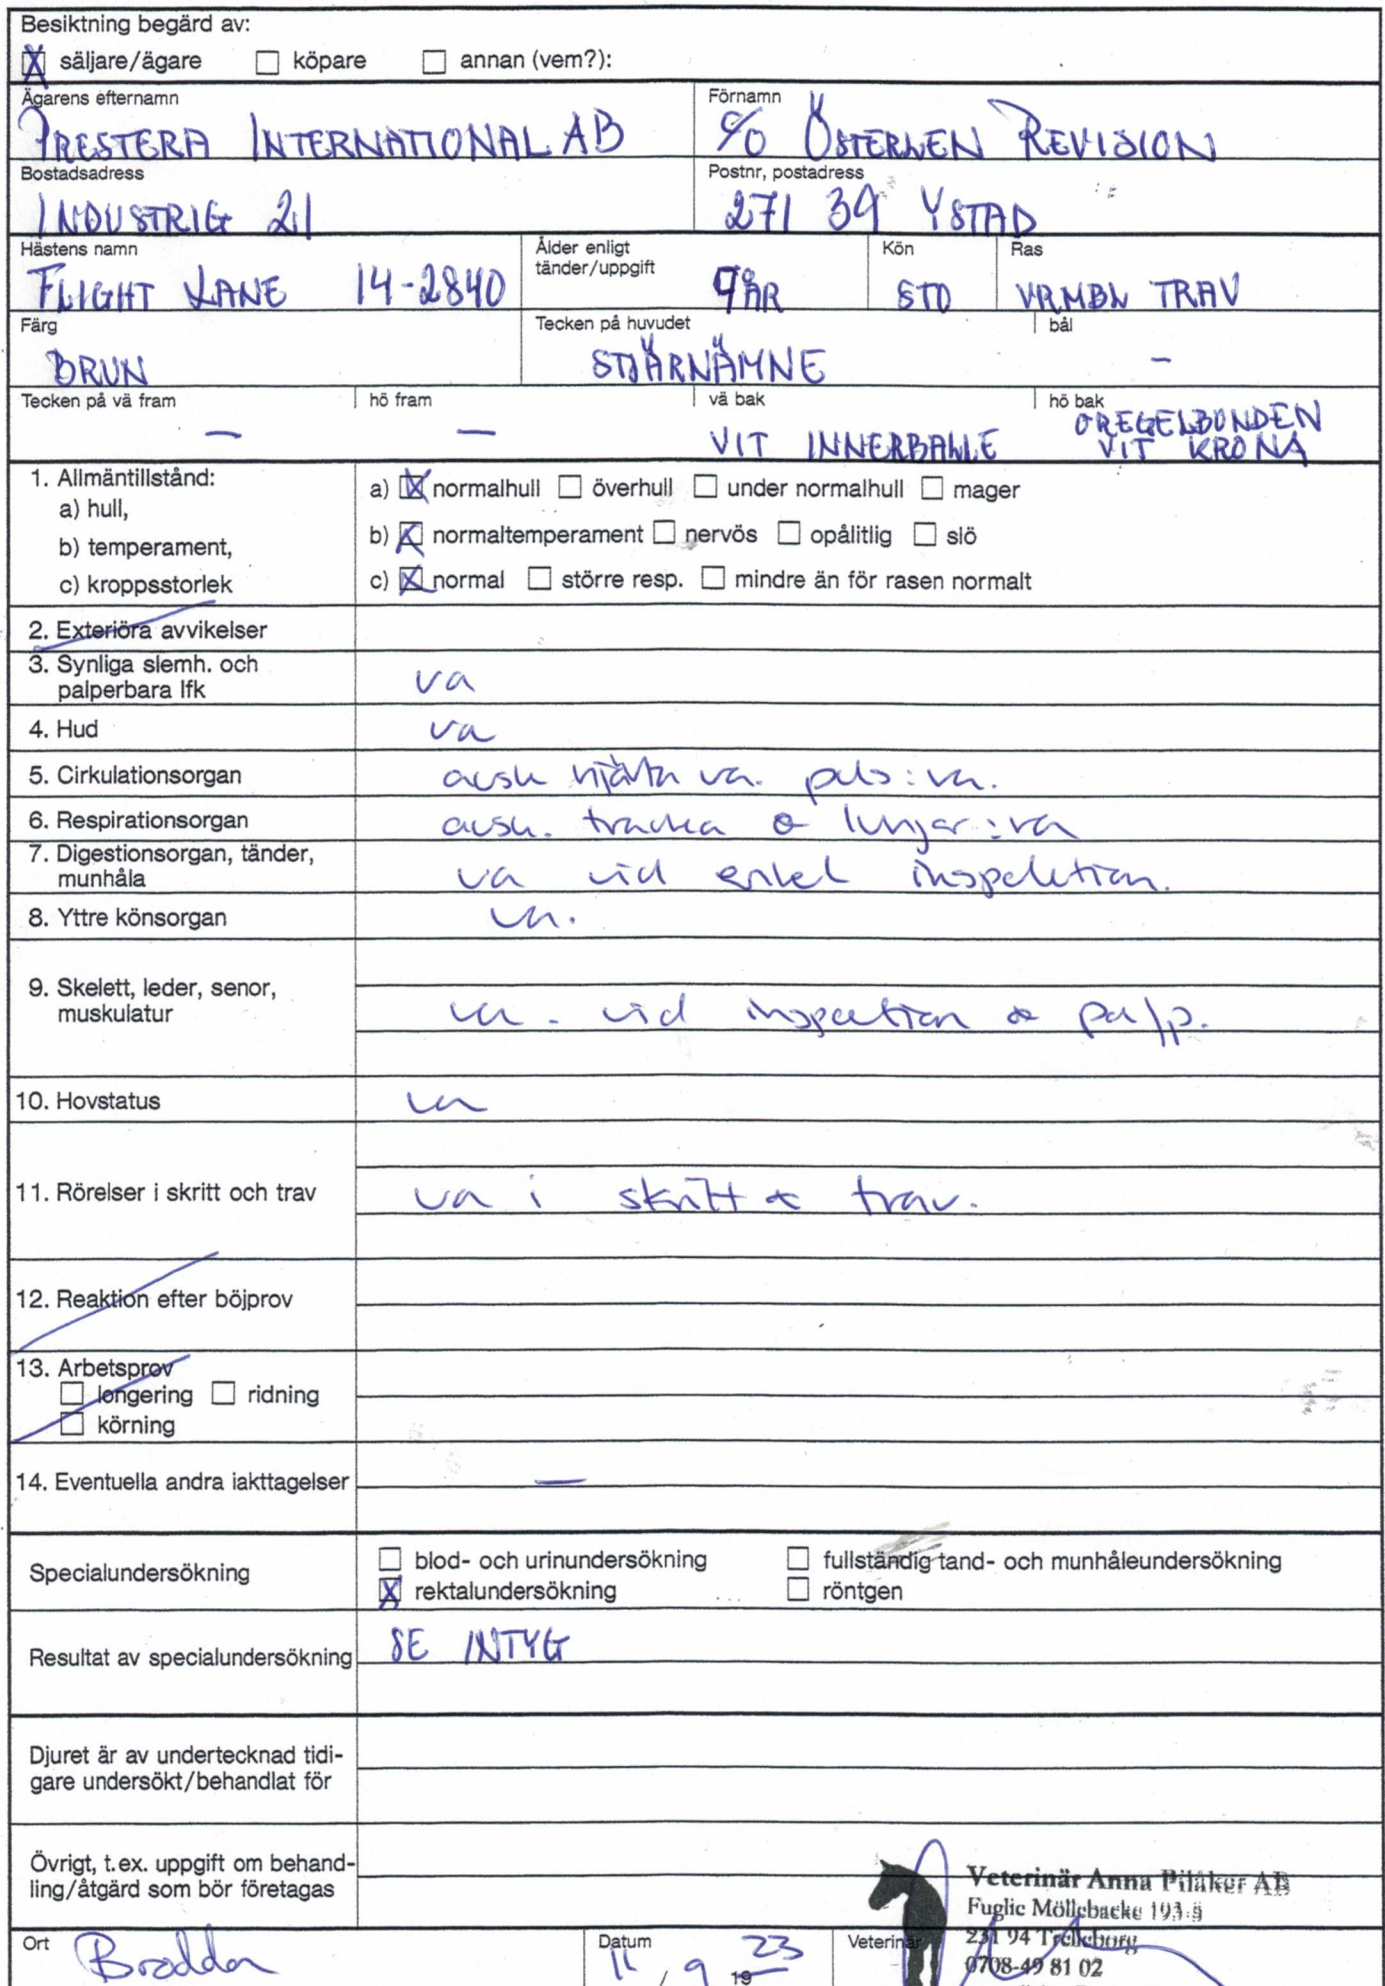 Besiktning begärd av:
säljare/ägare köpare annan (vem?):
Ägarens efternamn Förnamn
PRESTERA INTERNATIONAL AB C/O ÖSTERLEN REVISION
Bostadsadress Postnr, postadress
INDUSTRIG 21 271 39 YSTAD
Hästens namn Ålder enligt tänder/uppgift Kön Ras
FLIGHT LANE 14-2840 9 ÅR STO VRMBL TRAV
Färg Tecken på huvudet bål
BRUN STJÄRNÄMNE –
Tecken på vä fram hö fram vä bak hö bak
– – VIT INNERBALLE OREGELBUNDEN
VIT KRONA
1. Allmäntillstånd:
a) hull, a) normalhull överhull under normalhull mager
b) temperament, b) normaltemperament nervös opålitlig slö
c) kroppsstorlek c) normal större resp. mindre än för rasen normalt
2. Exteriöra avvikelser
3. Synliga slemh. och
palperbara lfk va
4. Hud va
5. Cirkulationsorgan ausk hjärta va. puls: va.
6. Respirationsorgan ausk. trachea & lungor: va
7. Digestionsorgan, tänder,
munhåla va vid enkel inspektion.
8. Yttre könsorgan va.
9. Skelett, leder, senor,
muskulatur va. vid inspection & palp.
10. Hovstatus va
11. Rörelser i skritt och trav va i skritt & trav.
12. Reaktion efter böjprov
13. Arbetsprov
longering ridning
körning
14. Eventuella andra iakttagelser –
Specialundersökning blod- och urinundersökning fullständig tand- och munhåleundersökning
rektalundersökning röntgen
Resultat av specialundersökning SE INTYG
Djuret är av undertecknad tidi-
gare undersökt/behandlat för
Övrigt, t.ex. uppgift om behand-
ling/åtgärd som bör företagas
Veterinär Anna Pilåker AB
Fuglie Möllebacke 193
231 94 Trelleborg
0708-49 81 02
Ort Datum Veterinär
Bradda 11 / 9 19 23